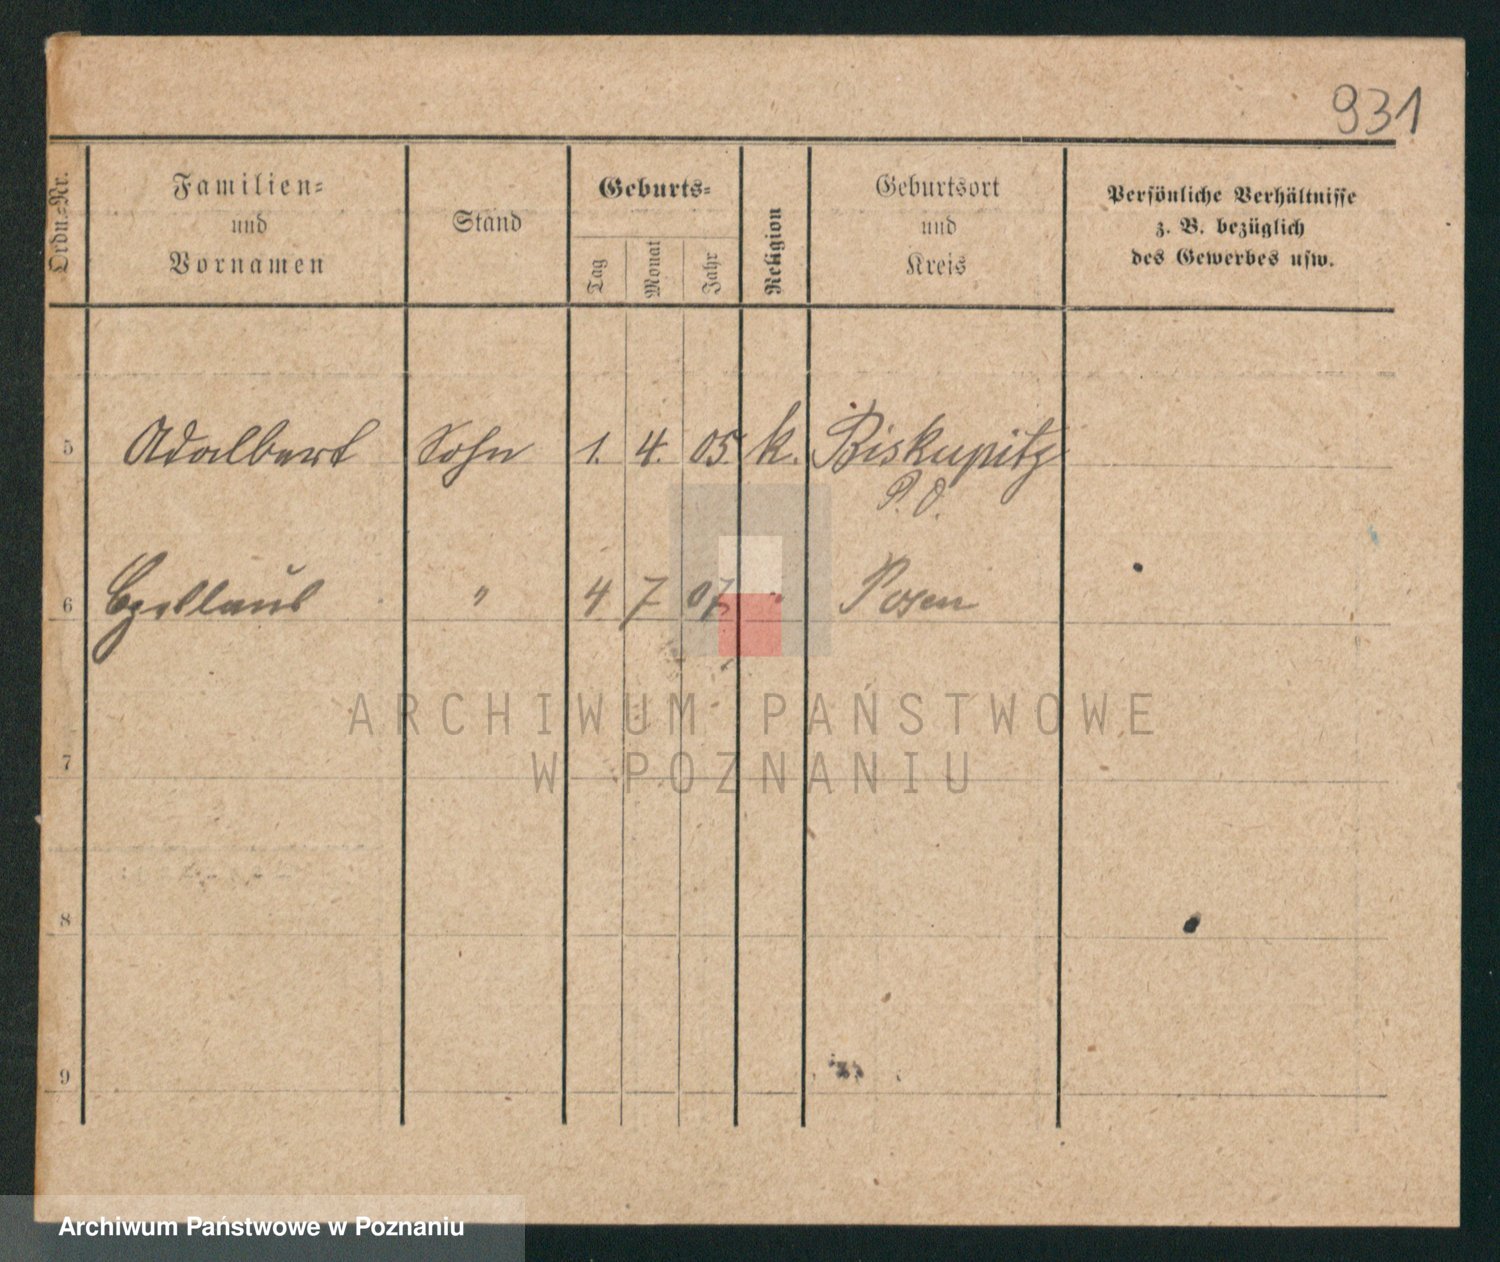 931
Ordn.=Nr.
Familien=
und
Vornamen
Stand
Geburts=
Tag
Monat
Jahr
Religion
Geburtsort
und
Kreis
Persönliche Verhältnisse
z. B. bezüglich
des Gewerbes usw.
5 Adalbert Sohn 1. 4. 05. k. Biskupitz
P. O.
6 Czeslaus " 4 7 07 " Posen
ARCHIWUM PAŃSTWOWE
W POZNANIU
7
8
9
Archiwum Państwowe w Poznaniu